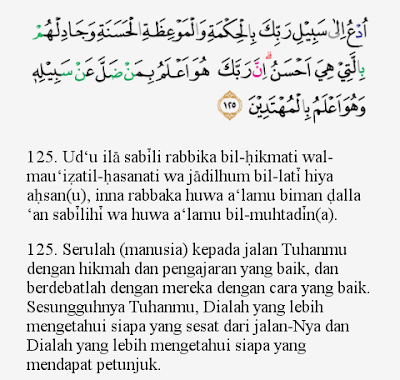 اُدْعُ اِلٰى سَبِيْلِ رَبِّكَ بِالْحِكْمَةِ وَالْمَوْعِظَةِ الْحَسَنَةِ وَجَادِلْهُمْ
بِالَّتِيْ هِيَ اَحْسَنُۗ اِنَّ رَبَّكَ هُوَ اَعْلَمُ بِمَنْ ضَلَّ عَنْ سَبِيْلِهٖ
وَهُوَ اَعْلَمُ بِالْمُهْتَدِيْنَ ١٢٥
125. Ud‘u ilā sabīli rabbika bil-ḥikmati wal-
mau‘iẓatil-ḥasanati wa jādilhum bil-latī hiya
aḥsan(u), inna rabbaka huwa a‘lamu biman ḍalla
‘an sabīlihī wa huwa a‘lamu bil-muhtadīn(a).
125. Serulah (manusia) kepada jalan Tuhanmu
dengan hikmah dan pengajaran yang baik, dan
berdebatlah dengan mereka dengan cara yang baik.
Sesungguhnya Tuhanmu, Dialah yang lebih
mengetahui siapa yang sesat dari jalan-Nya dan
Dialah yang lebih mengetahui siapa yang
mendapat petunjuk.